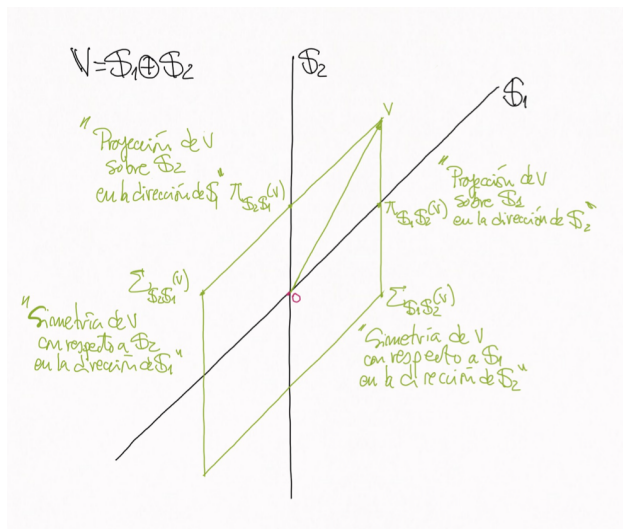 𝕍=𝕊₁⊕𝕊₂
𝕊₂
𝕊₁
v
"Proyección de v
sobre 𝕊₂
en la dirección de 𝕊₁"
π_{𝕊₂𝕊₁}(v)
"Proyección de v
sobre 𝕊₁
en la dirección de 𝕊₂"
π_{𝕊₁𝕊₂}(v)
Σ_{𝕊₂𝕊₁}(v)
0
Σ_{𝕊₁𝕊₂}(v)
"Simetría de v
con respecto a 𝕊₂
en la dirección de 𝕊₁"
"Simetría de v
con respecto a 𝕊₁
en la dirección de 𝕊₂"